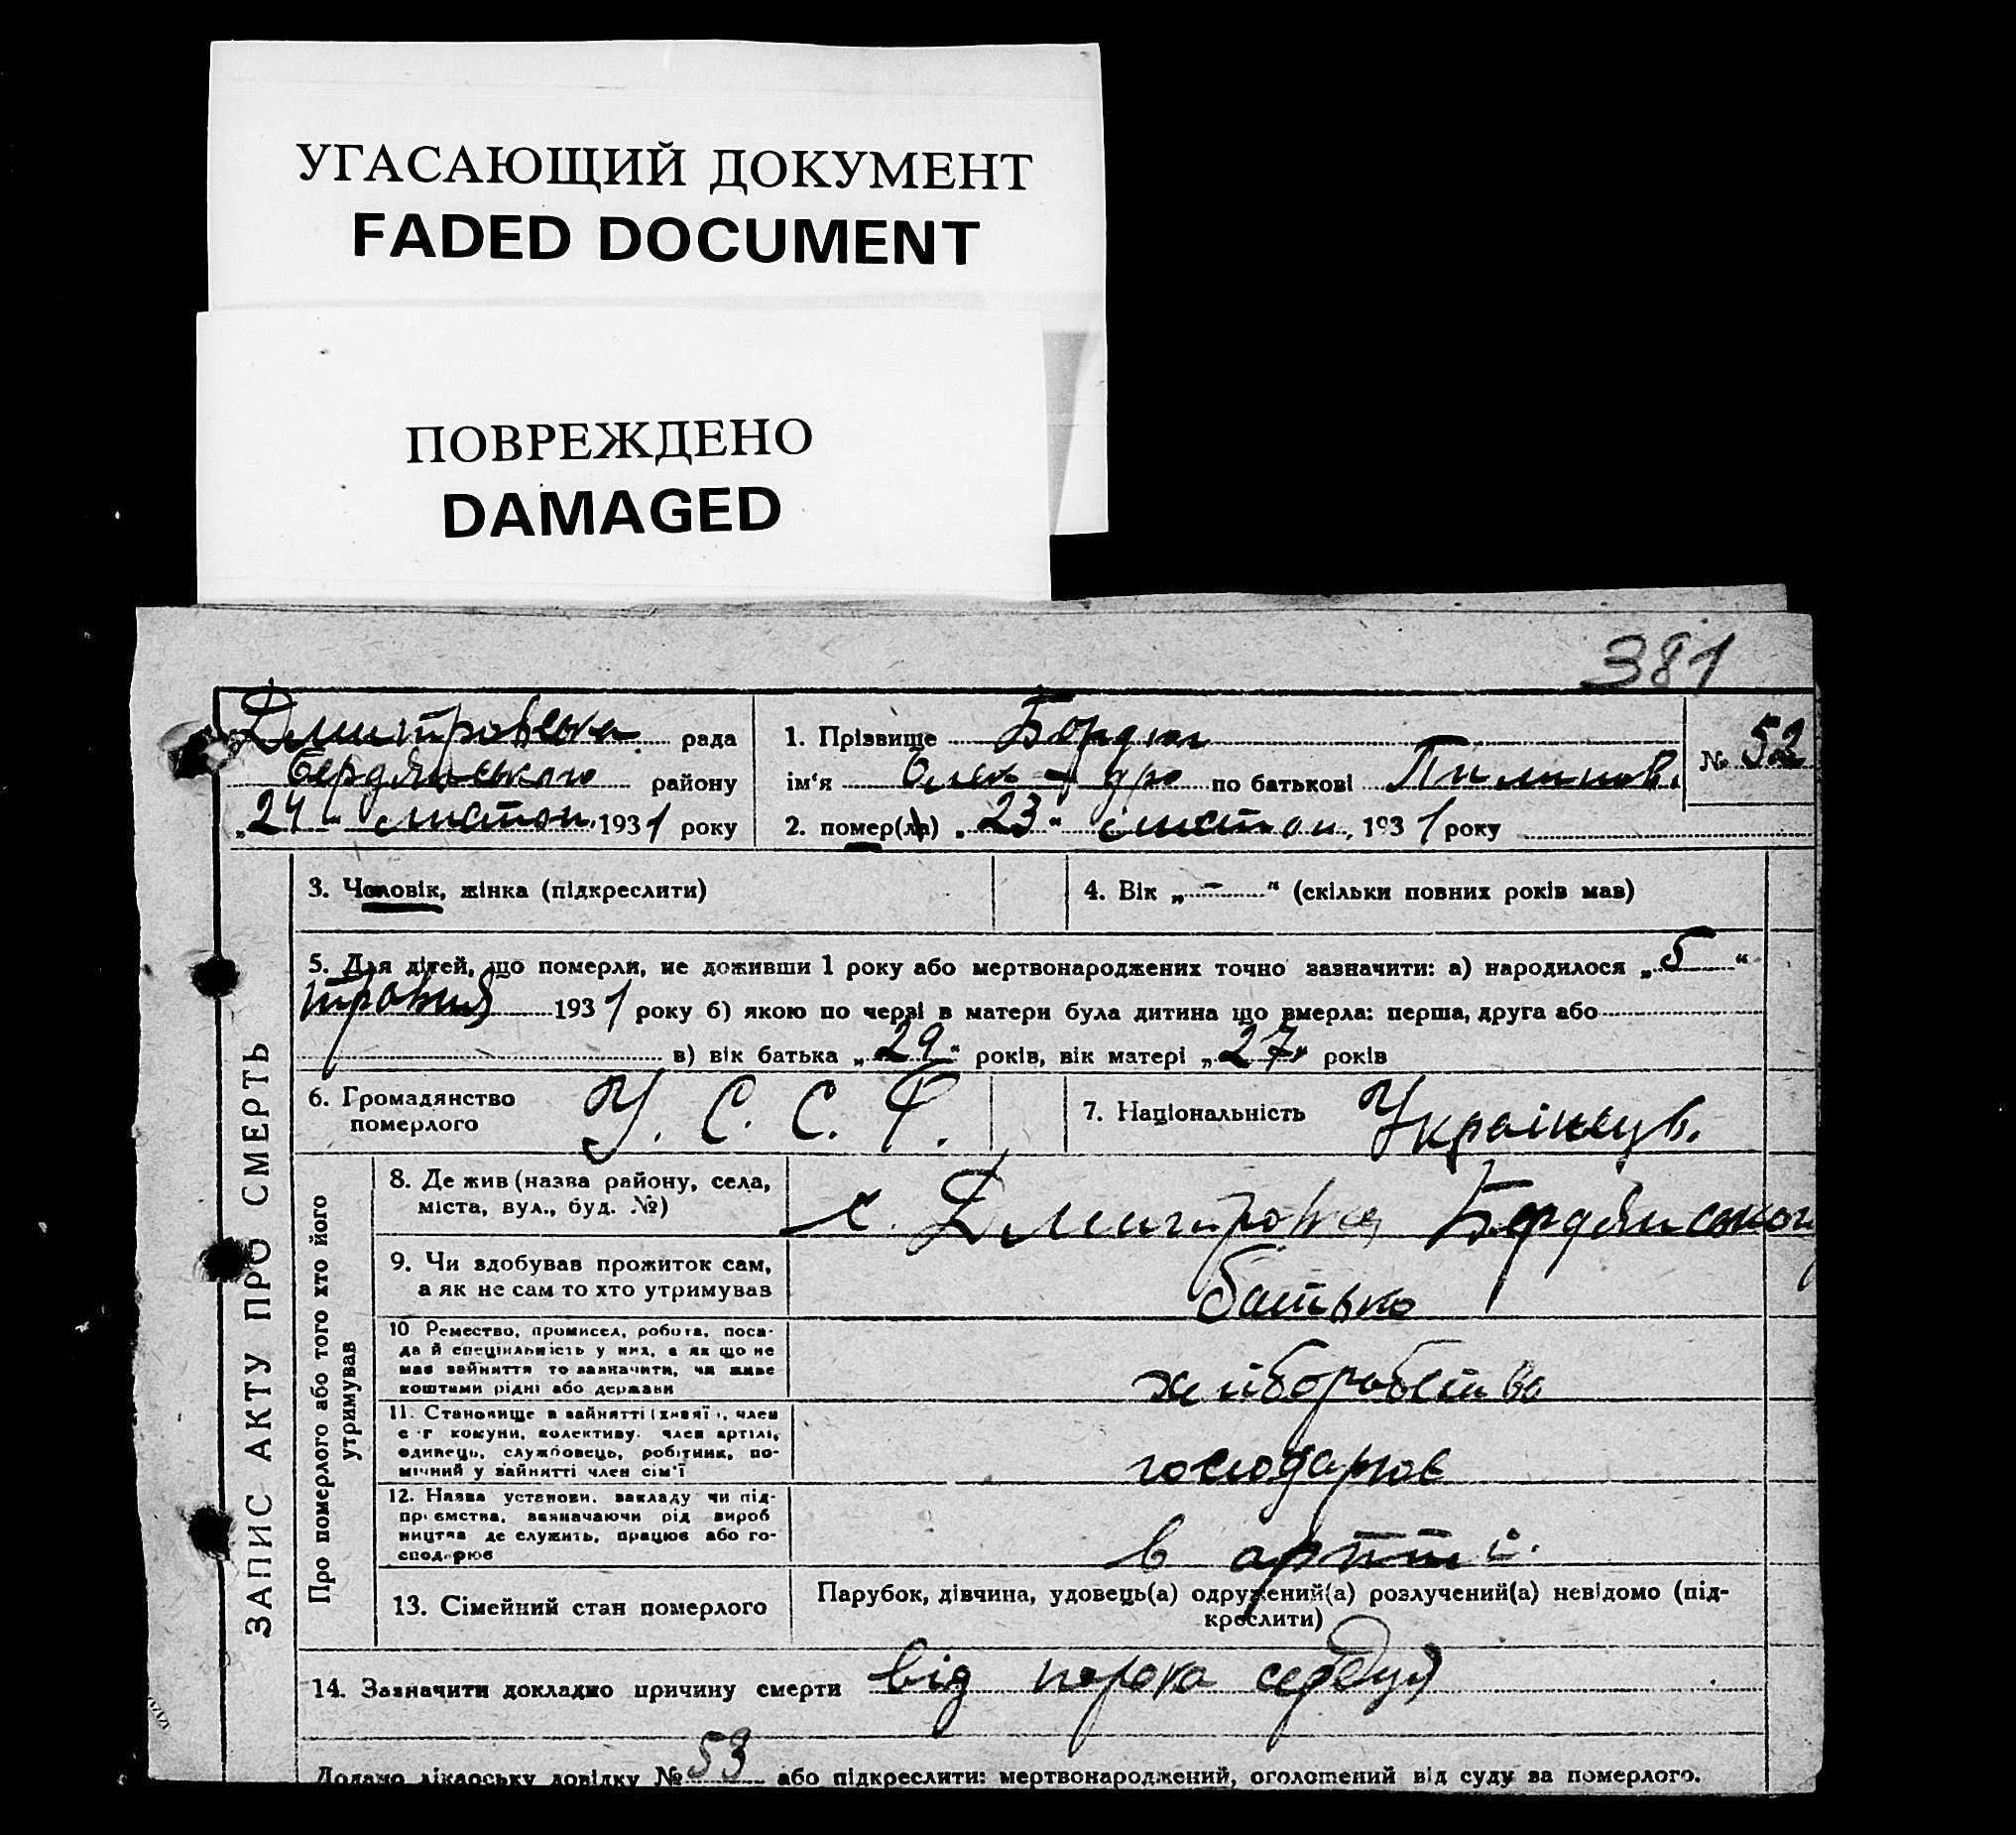 УГАСАЮЩИЙ ДОКУМЕНТ
FADED DOCUMENT
ПОВРЕЖДЕНО
DAMAGED
381
Дмитровська рада
Бердянського району
„24“ листоп. 1931 року
1. Прізвище Бордюг
ім'я Олек-дро по батькові Пилипов.
№ 52
2. помер(ла) „23“ листоп. 1931 року
3. Чоловік, жінка (підкреслити)
4. Вік „–“ (скільки повних років мав)
5. Для дітей, що померли, не доживши 1 року або мертвонароджених точно зазначити: а) народилося „5“
травня 1931 року б) якою по черзі в матери була дитина що вмерла: перша, друга або
в) вік батька „29“ років, вік матері „27“ років
6. Громадянство
померлого
У. С. С. Р.
7. Національність Українець.
ЗАПИС АКТУ ПРО СМЕРТЬ
Про померлого або того хто його
утримував
8. Де жив (назва району, села,
міста, вул., буд. №)
с. Дмитровка Бердянського
9. Чи здобував прожиток сам,
а як не сам то хто утримував
батько
10 Ремество, промисел, робота, поса-
да й спеціяльність у них, а як що не
мав зайняття то зазначити, чи живе
коштами рідні або держави
хліборобство
11. Становище в зайнятті (хазяї), член
с-г комуни, колективу, член артілі,
одинець, службовець, робітник, по-
мічний у зайнятті член сім'ї
господарює
12. Назва установи, закладу чи під-
приємства, зазначаючи рід вироб
ництва де служить, працює або го-
сподарює
в артілі.
13. Сімейний стан померлого
Парубок, дівчина, удовець(а) одружений(а) розлучений(а) невідомо (під-
креслити)
14. Зазначити докладно причину смерти від порока сердця
Додано лікарську довідку № 53 або підкреслити: мертвонароджений, оголошений від суду за померлого.